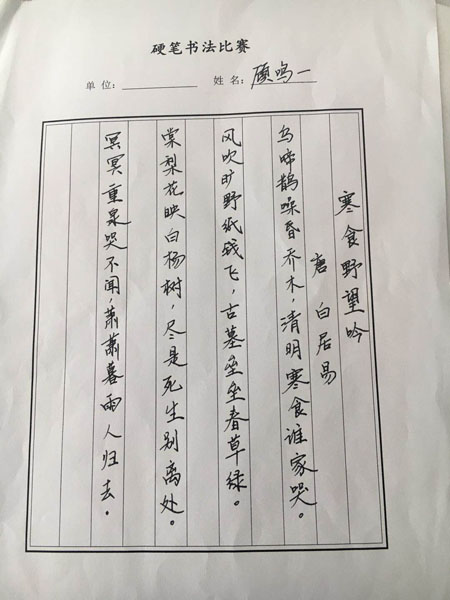 硬笔书法比赛
单位: 姓名: 顾鸣一
寒食野望吟
唐 白居易
乌啼鹊噪昏乔木,清明寒食谁家哭。
风吹旷野纸钱飞,古墓垒垒春草绿。
棠梨花映白杨树,尽是死生别离处。
冥冥重泉哭不闻,萧萧暮雨人归去。